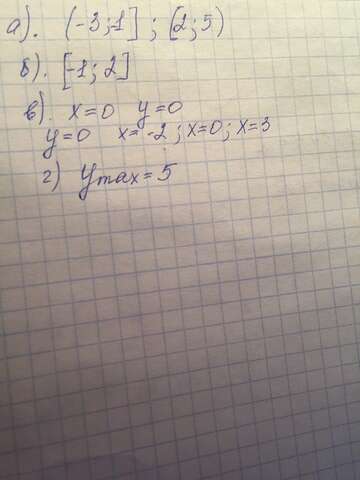 а). (-3;1] ; (2;5)
б). [-1;2]
в). x=0 y=0
y=0 x=-2; x=0; x=3
г) Ymax=5